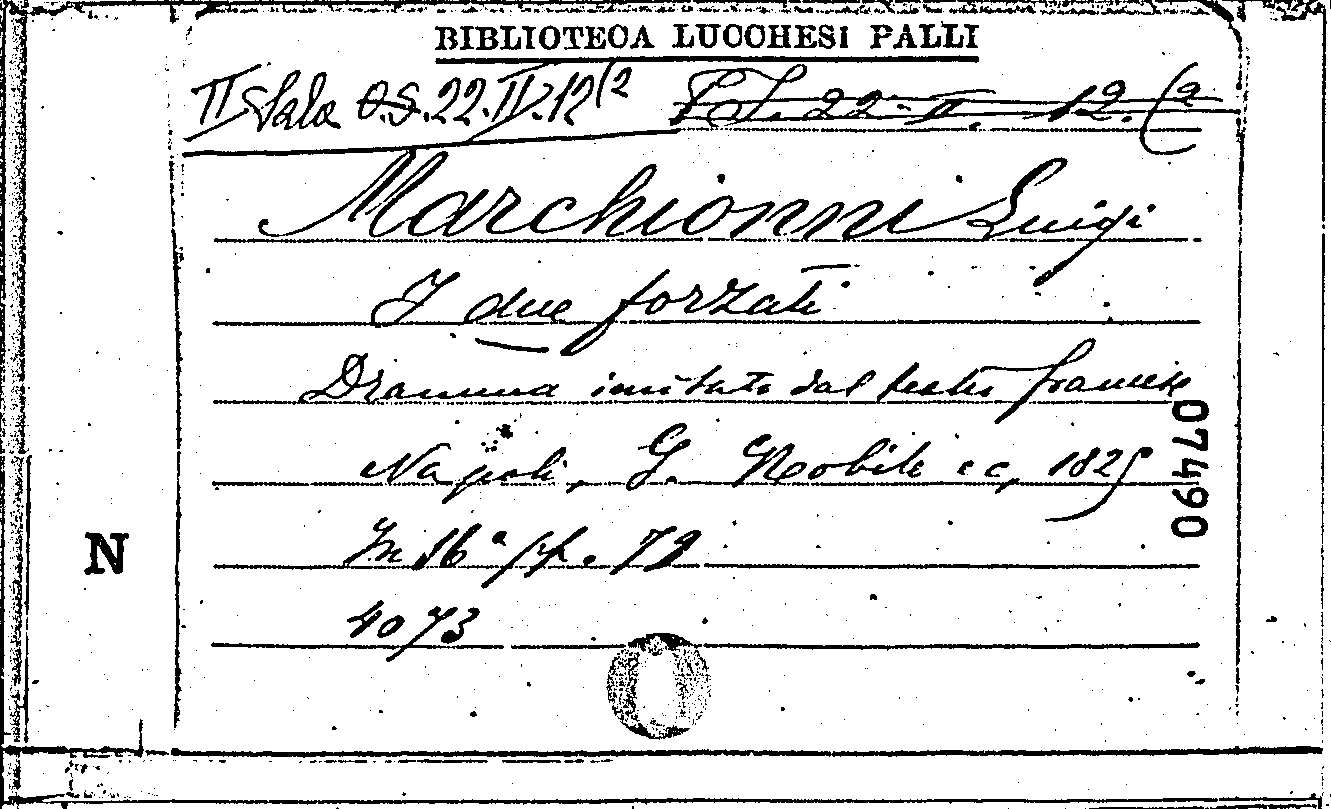 BIBLIOTECA LUCCHESI PALLI
II Sala O.S. 22. IV. 12(2 F.S. 22. II. 12. (2
Marchionni Luigi
I due forzati
Dramma imitato dal teatro francese
Napoli, G. Nobile e c, 1825
In 16° pp. 79
4073
074490
N